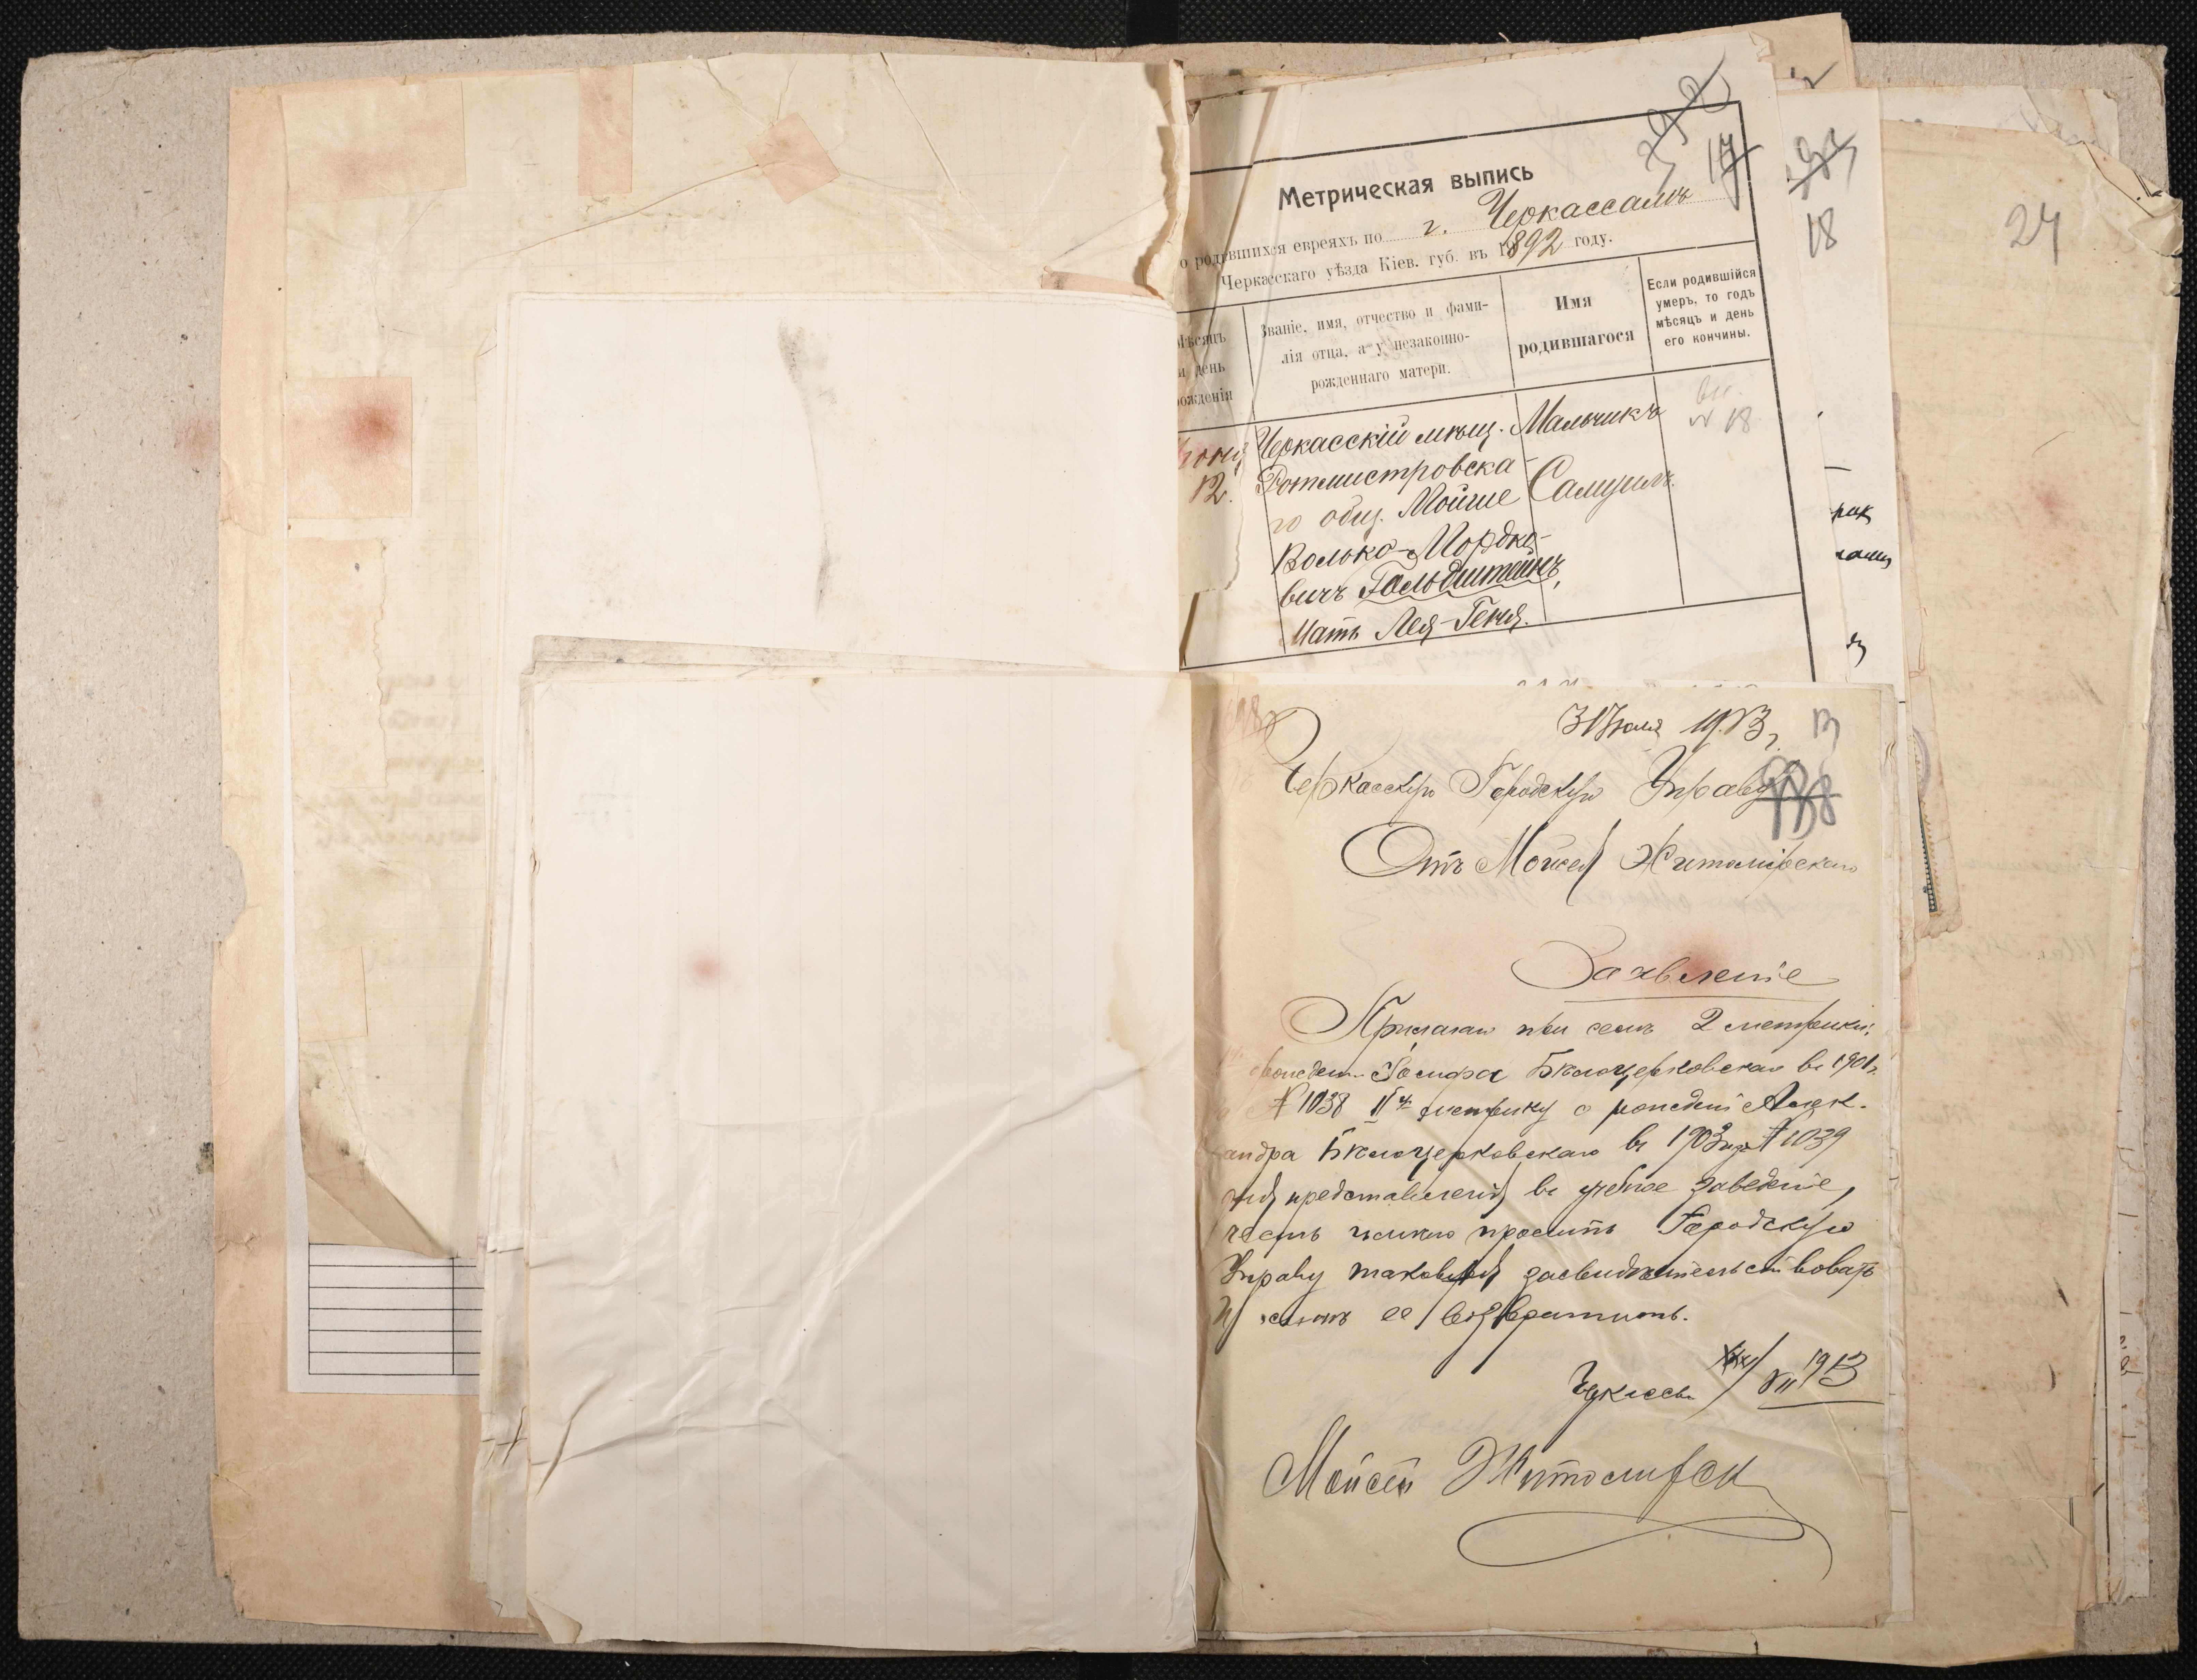 392
17
Метрическая выпись
о родившихся евреяхъ по г. Черкассамъ
Черкасскаго уѣзда Кіев. губ. въ 1892 году.
Мѣсяцъ и день рожденія
Званіе, имя, отчество и фами-
лія отца, а у незаконно-
рожденнаго матери.
Имя
родившагося
Если родившійся
умеръ, то годъ
мѣсяцъ и день
его кончины.
12.
Черкасскій мѣщ.
Ротмистровска-
го общ. Мойше
Волько-Мордко-
вичъ Гольдштейнъ,
Мать Лея-Геня.
Мальчикъ
Самуилъ.
№ 18
18
24
3 Іюля 1913 г.
13
Черкасскую Городскую Управу
Отъ Мойсея Житомірскаго
Заявленіе
Прилагая при семъ 2 метрики:
о рожденіи Іосифа Бѣлоцерковскаго въ 1901 г.
№ 1038 II метрику о рожденіи Алек-
сандра Бѣлоцерковскаго въ 1903 году № 1039
для представленія въ учебное заведеніе,
честь имѣю просить Городскую
Управу таковыя засвидѣтельствовать
и ее возвратить.
Черкассы VII 1913
Мойсей Житомирск